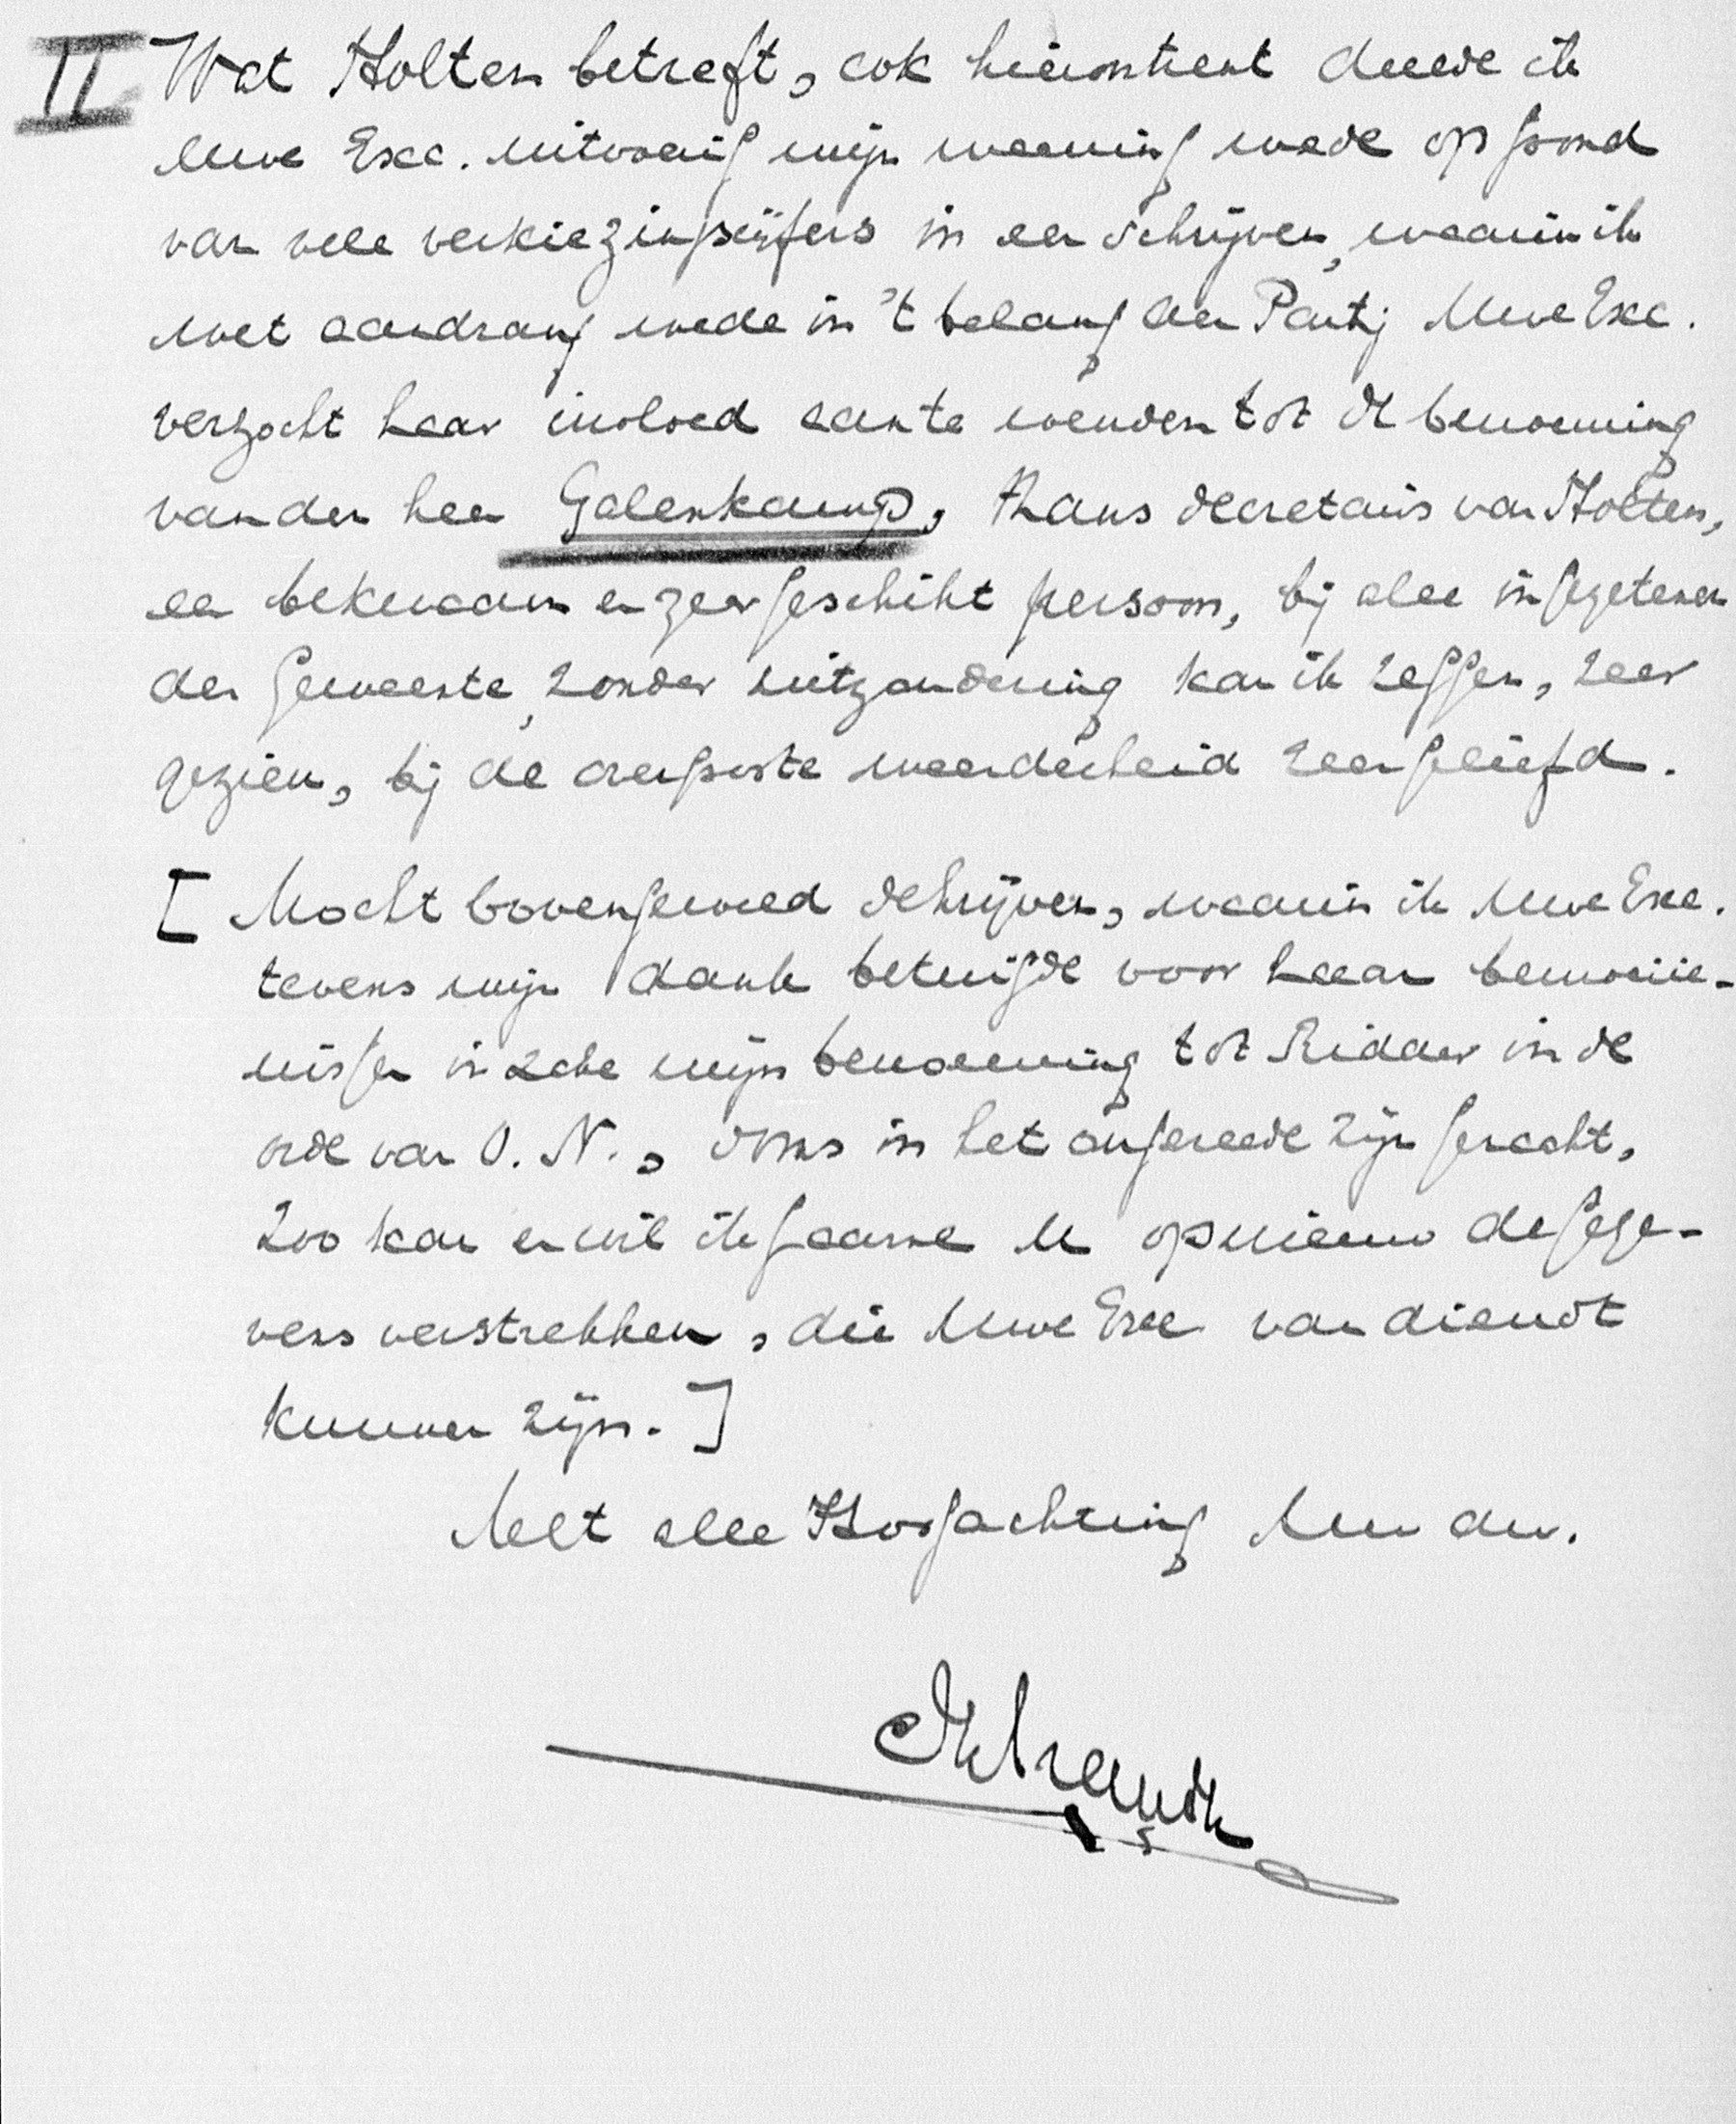 II Wat Holten betreft, ook hieromtrent deelde ik
Uwe Exc. uitvoerig mijn meening mede op grond
van vele verkiezingscijfers in een schrijven, waarin ik
met aandrang mede in 't belang der Partij Uwe Exc.
verzocht haar invloed aan te wenden tot de benoeming
van den heer Galenkamp, thans secretaris van Holten,
een bekwaam en zeer geschikt persoon, bij alle ingezetenen
der Gemeente, zonder uitzondering kan ik zeggen, zeer
gezien, bij de overgroote meerderheid zeer geliefd.
[ Mocht bovengemeld schrijven, waarin ik Uwe Exc.
tevens mijn dank betuigde voor haar bemoeiie-
nissen in zake mijn benoeming tot Ridder in de
orde van O. N., soms in het ongereede zijn geraakt,
zoo kan en wil ik gaarne U opnieuw de gege-
vens verstrekken, die Uwe Exc van dienst
kunnen zijn. ]
Met alle Hoogachting Uw dw.